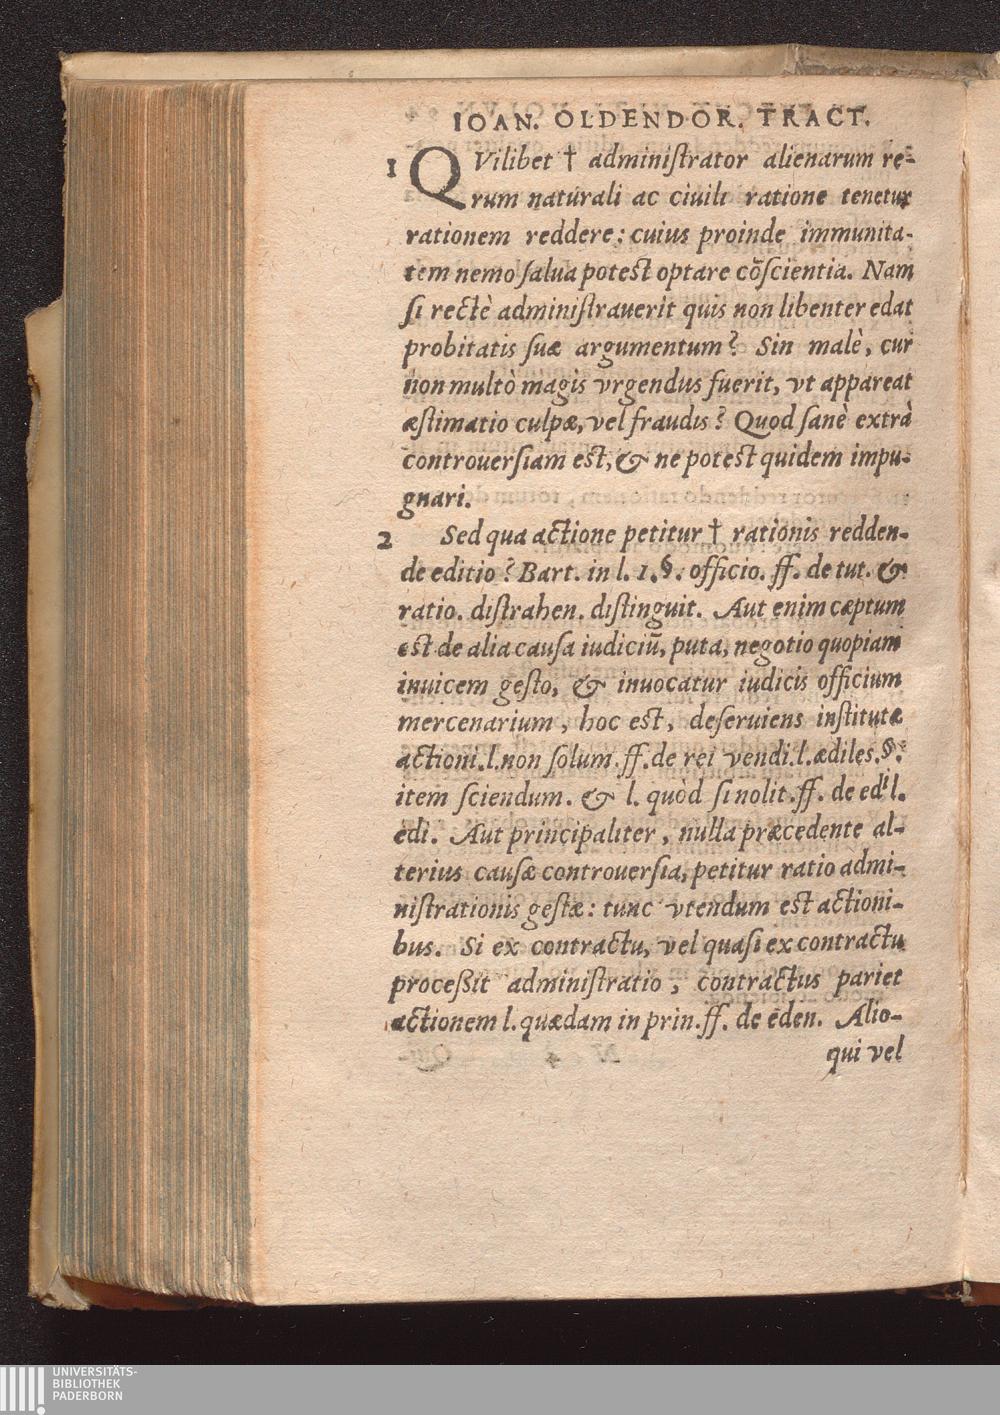 IOAN. OLDENDOR. TRACT.
1 QVilibet † adminiſtrator alienarum re-
rum naturali ac ciuili ratione tenetur
rationem reddere: cuius proinde immunita-
tem nemo ſalua poteſt optare cõſcientia. Nam
ſi rectè adminiſtrauerit quis non libenter edat
probitatis ſuæ argumentum? Sin malè, cur
non multò magis vrgendus fuerit, vt appareat
æſtimatio culpæ, vel fraudis? Quod ſanè extrà
controuerſiam eſt, & ne poteſt quidem impu-
gnari.
2 Sed qua actione petitur † rationis redden-
de editio? Bart. in l. 1. §. officio. ff. de tut. &
ratio. diſtrahen. diſtinguit. Aut enim cæptum
eſt de alia cauſa iudiciũ, puta, negotio quopiam
inuicem geſto, & inuocatur iudicis officium
mercenarium, hoc eſt, deſeruiens inſtitutæ
actioni. l. non ſolum. ff. de rei vendi. l. ædiles. §.
item ſciendum. & l. quòd ſi nolit. ff. de edil.
edi. Aut principaliter, nulla præcedente al-
terius cauſæ controuerſia, petitur ratio admi-
niſtrationis geſtæ: tunc vtendum eſt actioni-
bus. Si ex contractu, vel quaſi ex contractu
proceßit adminiſtratio, contractus pariet
actionem l. quædam in prin. ff. de eden. Alio-
qui vel
UNIVERSITÄTS-
BIBLIOTHEK
PADERBORN